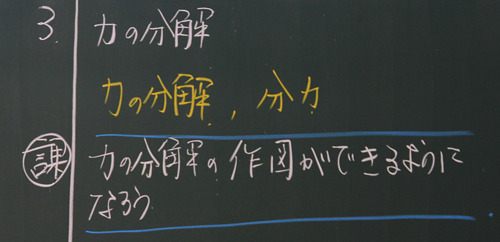 3. 力の分解
力の分解，分力
課 力の分解の作図ができるように
なろう